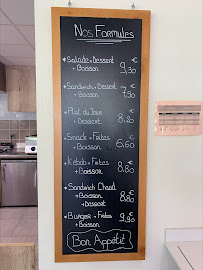 Nos Formules
• Salade + Dessert €
+ Boisson 9,30
• Sandwich + Dessert €
+ Boisson 7,90
• Plat du Jour €
+ Dessert 8,20
• Snack + Frites €
+ Boisson 6,60
• Kebab + Frites €
+ Boisson 8,80
• Sandwich Chaud €
+ Boisson 8,80
+ Dessert
• Burger + Frites €
+ Boisson 9,90
Bon Appétit